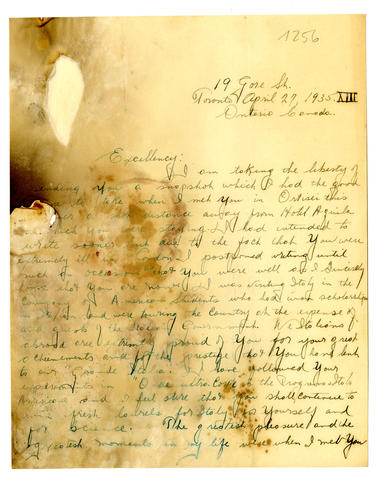 1256
19 Gore St.
Toronto April 27, 1935. XIII
Ontario Canada.
Excellency:
I am taking the liberty of
sending you a snapshot which I had the good
to take when I met you in Ortisei this
a distance away from Hotel Aquila
which you staying. I had intended to
write sooner but due to the fact that You were
extremely ill in I postponed writing until
such occasion that You were well as I sincerely
hope that you are now. I was visiting Italy in the
Company of American Students who had won scholarships
in and were touring the Country at the expense of
and guests of the Italian Government. We Italians
abroad are extremely proud of You for your great
achievements and for the prestige that You have lent
to our Grande Patria. I have followed Your
experiments in
American and I feel sure that You shall continue to
win fresh laurels for Italy, for Yourself and
for Science. The greatest pleasure and the
greatest moments in my life were when I met You